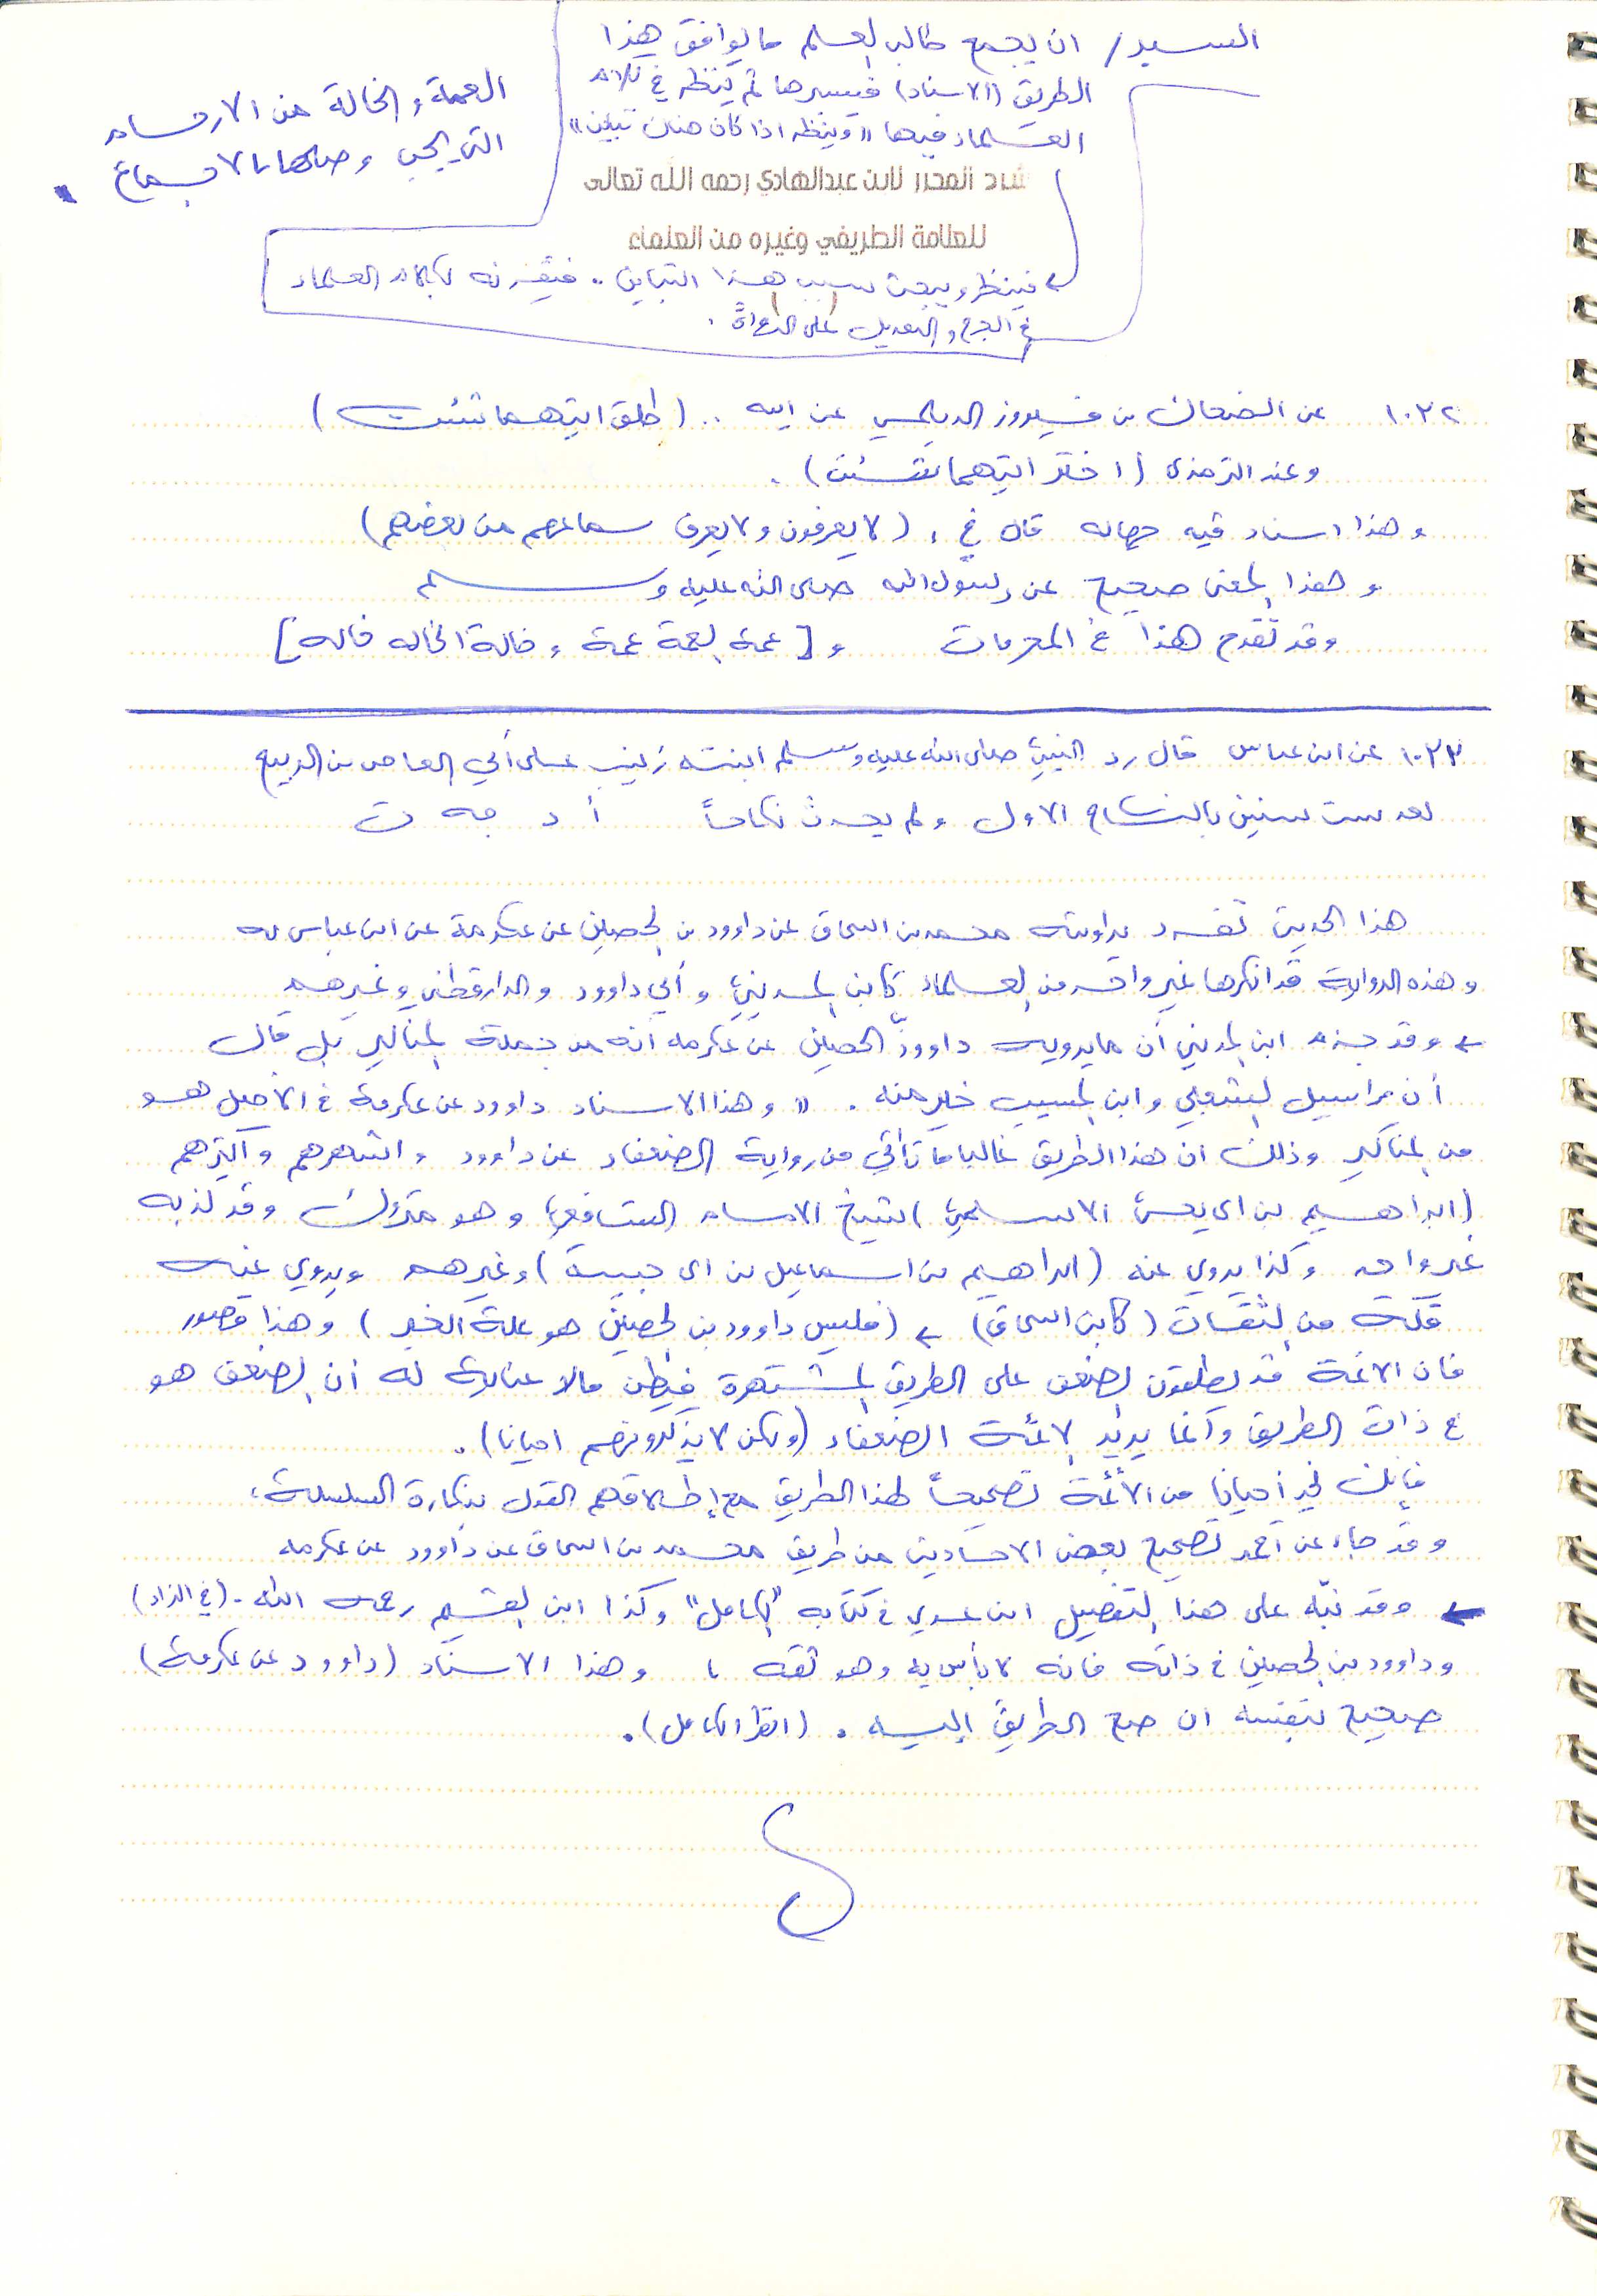 السبر / ان يجمع طالب العلم ما يوافق هذا
الطريق (الاسناد) فيسبرها ثم ينظر في كلام
العلماء فيها "وينظر اذا كان هناك تباين"
العمة والخالة من الارحام
التي يجب وصلها بالاجماع
شاد المحرر لابن عبدالهادي رحمه الله تعالى
للعلامة الطريفي وغيره من العلماء
فينظر ويبحث سبب هذا التباين .. فيقرنه بكلام العلماء
في الجرح والتعديل على الرواة .
١٠٢٢ عن الضحاك بن فيروز الديلمي عن ابيه .. (طلق ايتهما شئت)
وعند الترمذي (اختر ايتهما شئت) .
وهذا اسناد فيه جهالة قال خ ، (لا يعرفون ولا يعرف سماعهم من بعضهم)
وهذا المعنى صحيح عن رسول الله صلى الله عليه وسلم
وقد تقدم هذا في المحرمات و [عمة العمة عمة وخالة الخالة خالة]
١٠٢٣ عن ابن عباس قال رد النبي صلى الله عليه وسلم ابنته زينب على أبي العاص بن الربيع
بعد ست سنين بالنكاح الاول ولم يحدث نكاحاً أ د جه ت
هذا الحديث تفرد بروايته محمد بن اسحاق عن داوود بن الحصين عن عكرمة عن ابن عباس به
وهذه الرواية قد انكرها غير واحد من العلماء كابن المديني وأبي داوود والدارقطني وغيرهم
← وقد جزم ابن المديني أن ما يرويه داوود الحصين عن عكرمه أنه من جملة المناكير بل قال
أن مراسيل الشعبي وابن المسيب خير منه . "وهذا الاسناد داوود عن عكرمة في الأصل هو
من المناكير وذلك ان هذا الطريق غالبا ما تأتي من رواية الضعفاء عن داوود واشهرهم واكثرهم
(ابراهيم بن ابي يحيى الاسلمي) شيخ الامام الشافعي وهو متروك وقد كذبه
غير واحد وكذا يروي عنه (ابراهيم بن اسماعيل بن ابي حبيبة) وغيرهم ويروي عنه
قلة من الثقات (كابن اسحاق) ← (فليس داوود بن الحصين هو علة الخبر) وهذا قصور
فان الائمة قد يطلقون الضعف على الطريق المشتهرة فيظن مالا عناية له أن الضعف هو
في ذات الطريق وانما يريد الائمة الضعفاء (ولكن لا يذكرونهم احيانا) .
فإنك تجد أحيانا من الأئمة تصحيحاً لهذا الطريق مع إطلاقهم القول بنكارة السلسلة ،
وقد جاء عن احمد تصحيح بعض الاحاديث من طريق محمد بن اسحاق عن داوود عن عكرمه
← وقد نبّه على هذا التفصيل ابن عدي في كتابه "الكامل" وكذا ابن القيم رحمه الله - (في الزاد)
وداوود بن الحصين في ذاته فانه لا بأس به وهو ثقه ، وهذا الاسناد (داوود عن عكرمة)
صحيح بنفسه ان صح الطريق إليه . (انظر الكامل) .